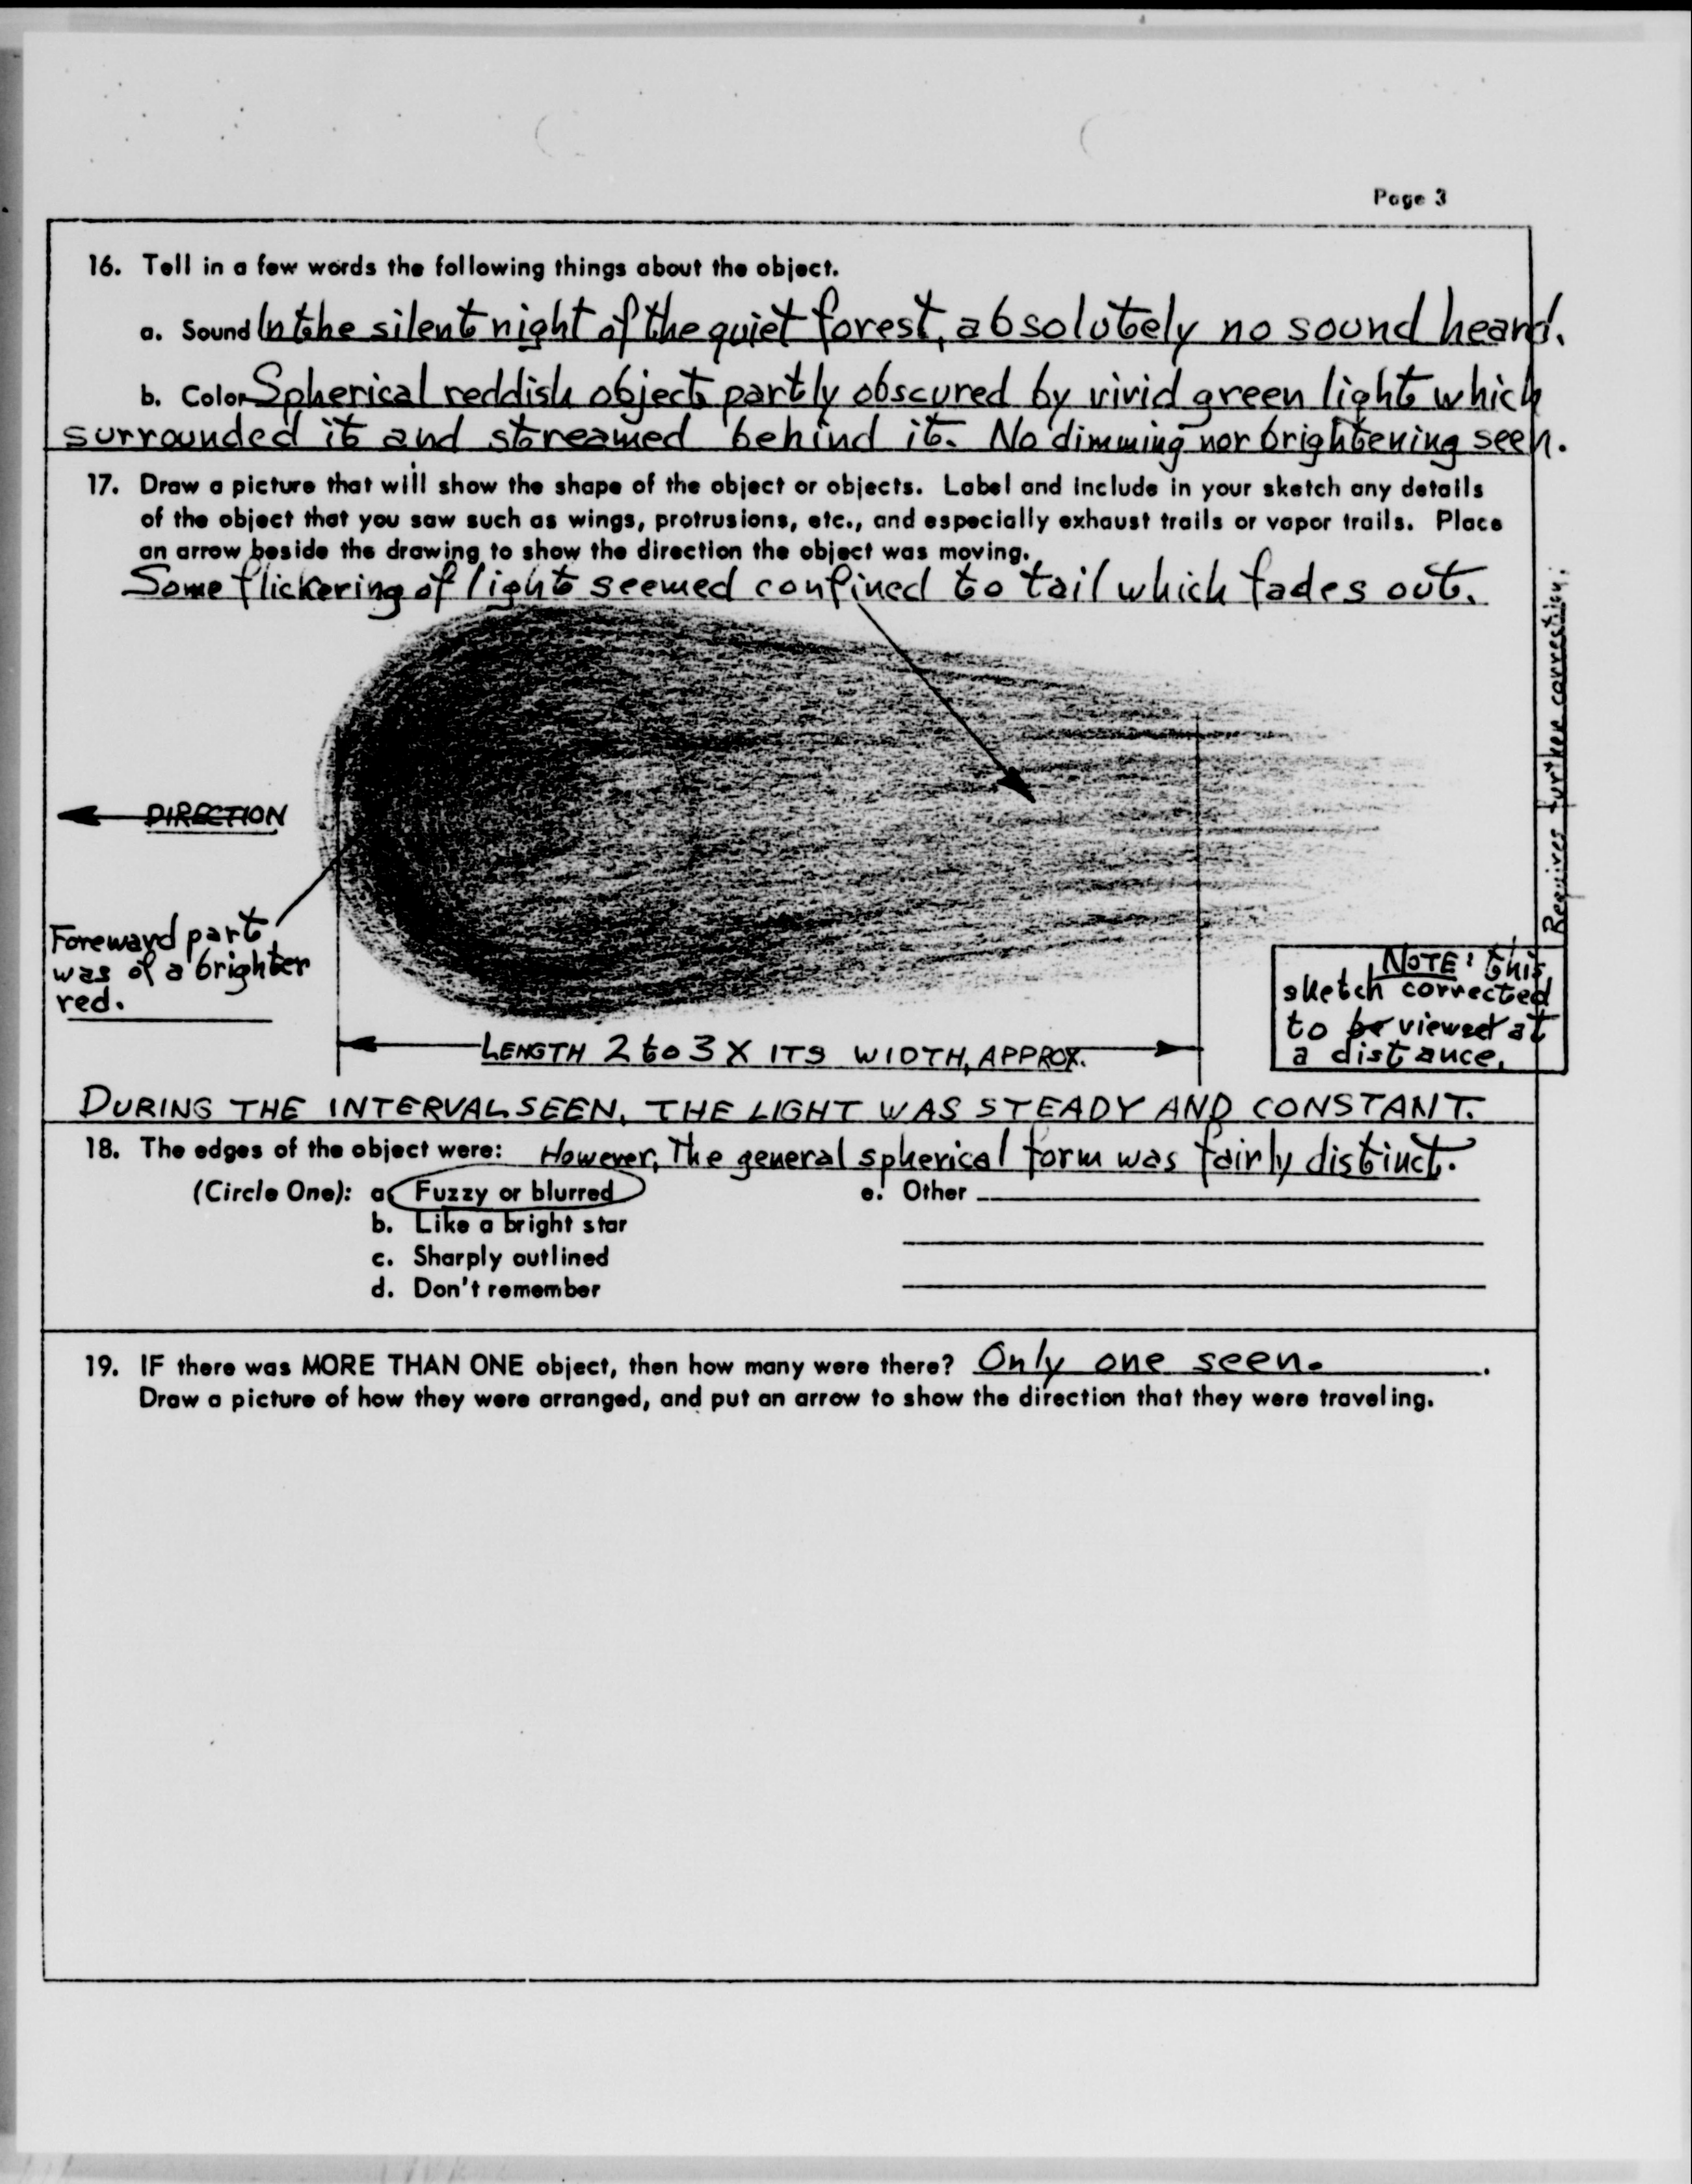 Page 3
16. Tell in a few words the following things about the object.
a. Sound In the silent night of the quiet forest, absolutely no sound heard.
b. Color Spherical reddish object partly obscured by vivid green light which
surrounded it and streamed behind it. No dimming nor brightening seen.
17. Draw a picture that will show the shape of the object or objects. Label and include in your sketch any details
of the object that you saw such as wings, protrusions, etc., and especially exhaust trails or vapor trails. Place
an arrow beside the drawing to show the direction the object was moving.
Some flickering of light seemed confined to tail which fades out.
DIRECTION
Foreward part
was of a brighter
red.
Requires further correction.
NOTE: this
sketch corrected
to be viewed at
a distance.
LENGTH 2 to 3 X ITS WIDTH, APPROX.
DURING THE INTERVAL SEEN, THE LIGHT WAS STEADY AND CONSTANT.
18. The edges of the object were: However, The general spherical form was fairly distinct.
(Circle One): a. Fuzzy or blurred
b. Like a bright star
c. Sharply outlined
d. Don't remember
e. Other
19. IF there was MORE THAN ONE object, then how many were there? Only one seen.
Draw a picture of how they were arranged, and put an arrow to show the direction that they were traveling.